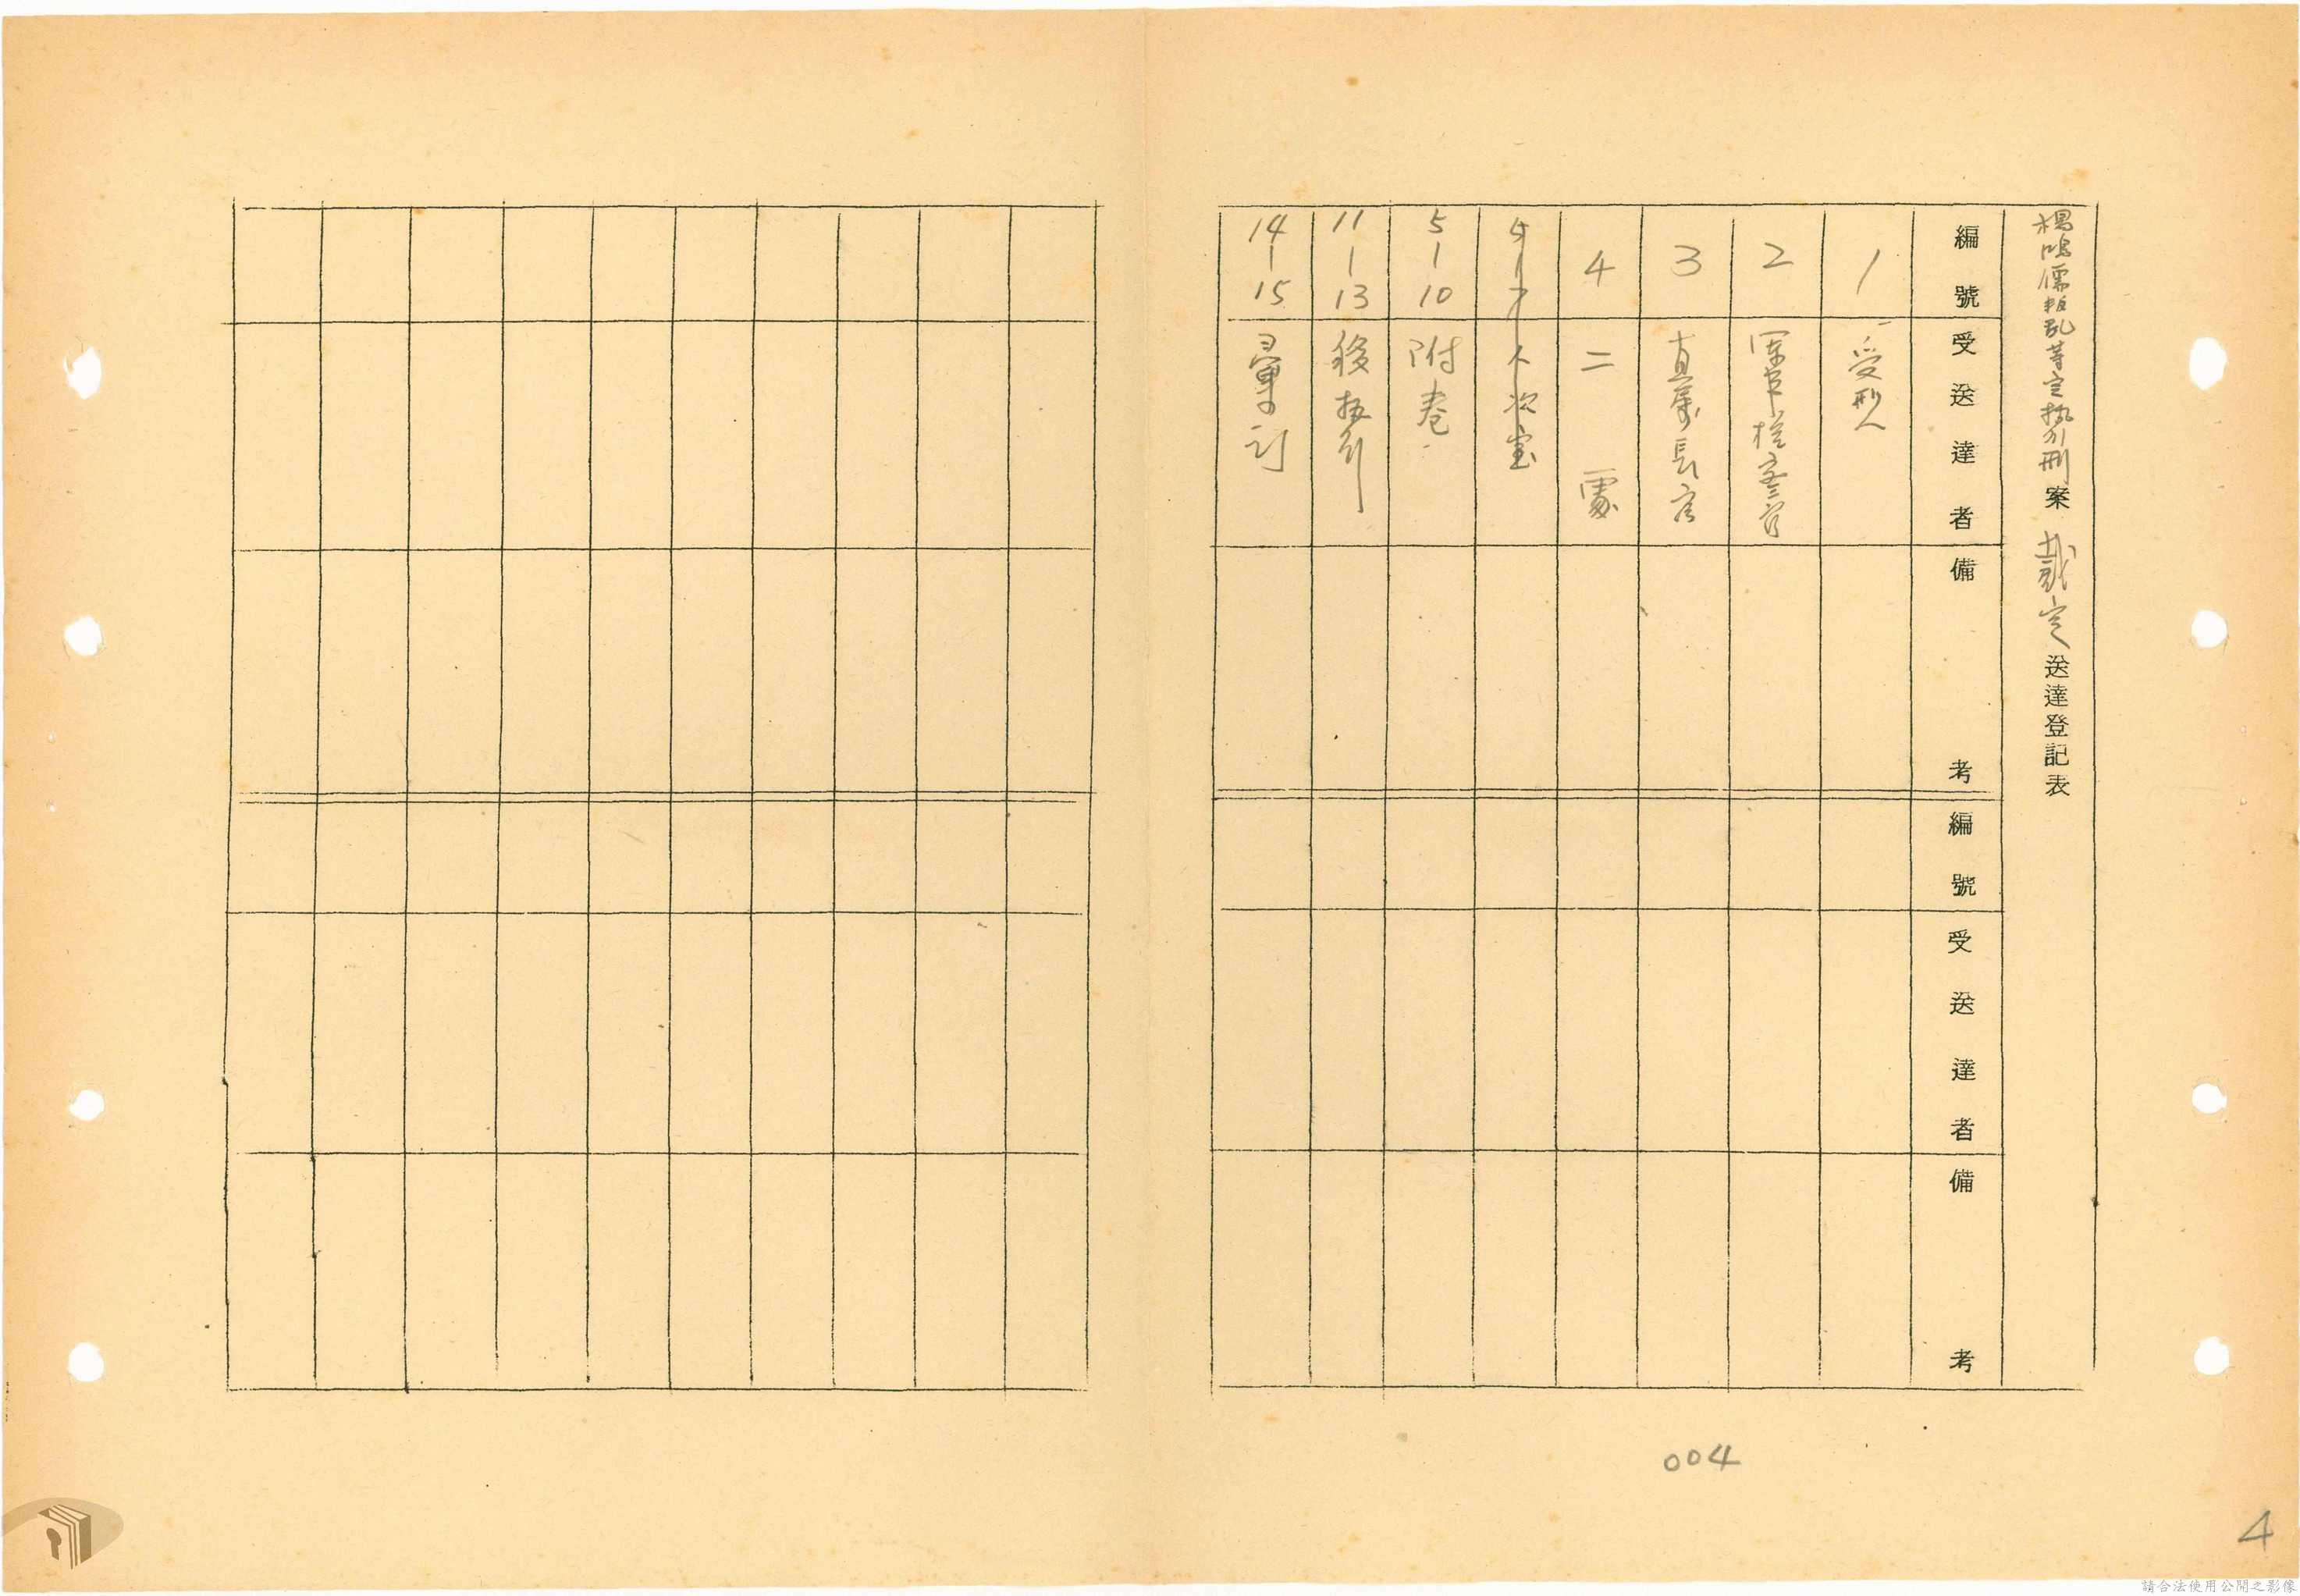 楊鴻儒叛乱等定执行刑案 裁定 送達登記表
編號 受送達者 備考 編號 受送達者 備考
1 受刑人
2 軍事檢察官
3 直屬長官
4 二處
5-10 附卷
11-13 移执行
14-15 彙訂
004
4
請合法使用公開之影像